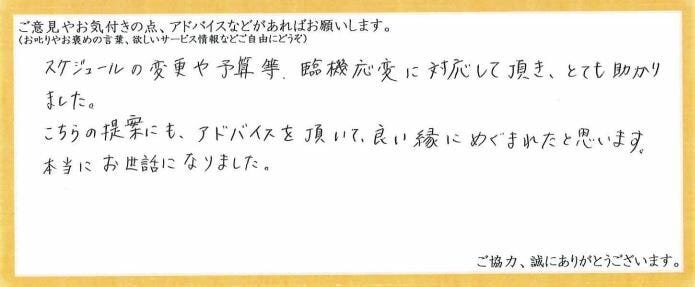 ご意見やお気付きの点、アドバイスなどがあればお願いします。
(お叱りやお褒めの言葉、欲しいサービス情報などご自由にどうぞ)
スケジュールの変更や予算等、臨機応変に対応して頂き、とても助かり
ました。
こちらの提案にも、アドバイスを頂いて、良い縁にめぐまれたと思います。
本当にお世話になりました。
ご協力、誠にありがとうございます。